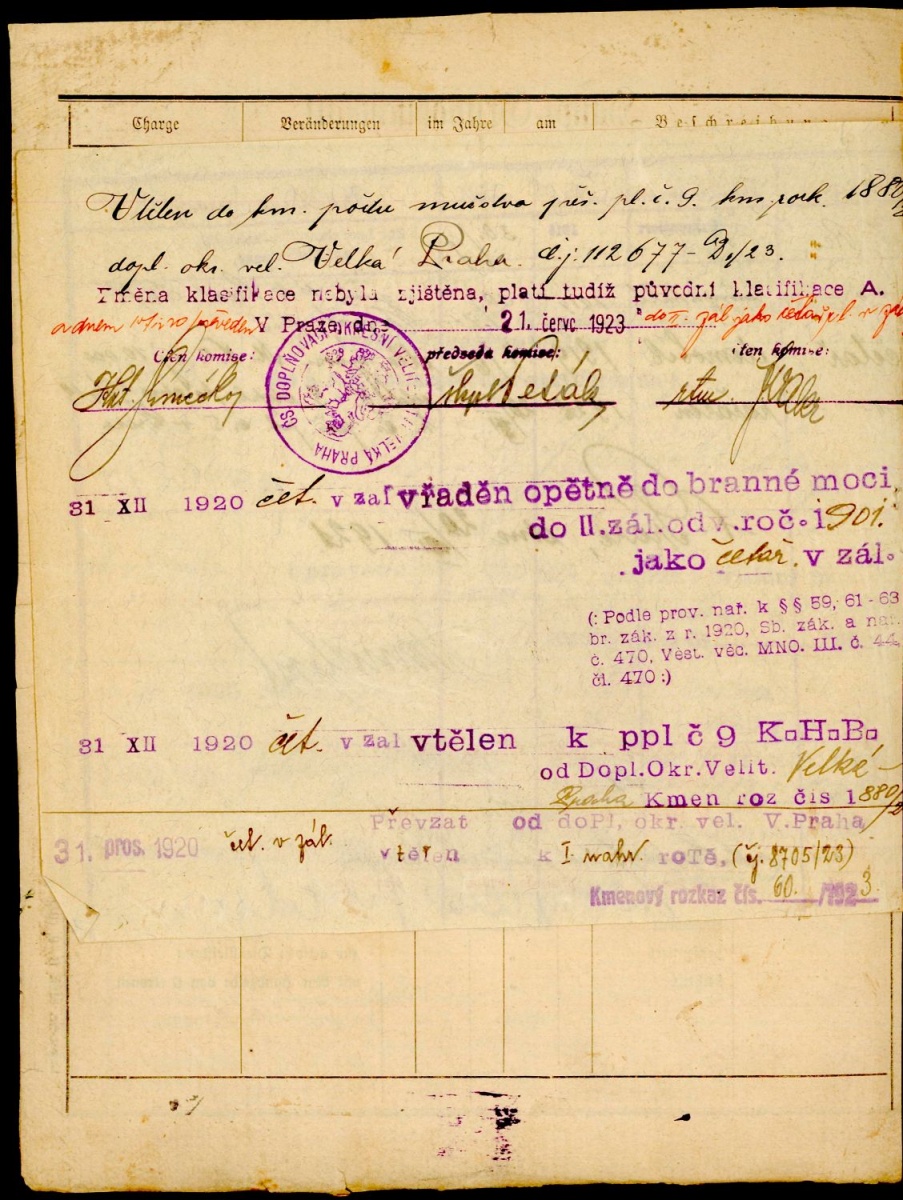 Charge Veränderungen im Jahre am Beschreibung
Vtělen do km. počtu mužstva pěš. pl. č. 9. km rozk. 1880/
dopl. okr. vel. Velká Praha. č.j. 112677- /23.
Změna klasifikace nebyla zjištěna, platí tudíž původní klasifikace A.
a dnem převeden V Praze, dne 21. červc 1923 do II. zál jako četař pl. v
člen komise: předseda komise: člen komise:
ČS DOPLŇOVACÍ OKRESNÍ VELITELSTVÍ VELKÁ PRAHA
31 XII 1920 čet. v zál vřaděn opětně do branné moci,
do II. zál. odv. roč. 1901.
jako četař. v zál.
(: Podle prov. nař. k §§ 59, 61-63
br. zák. z r. 1920, Sb. zák. a nař.
č. 470, Věst. věc. MNO. III. č. 44,
čl. 470 :)
31 XII 1920 čet. v zál vtělen k ppl č 9 K.H.B.
od Dopl. Okr. Velit. Velká-
Praha Kmen roz čís 1880/
31. pros. 1920 čet. v zál. Převzat od dopl, okr. vel. V. Praha
vtělen k I. nahr. rotě, (čj. 8705/23)
Kmenový rozkaz čís. 60. /1923.